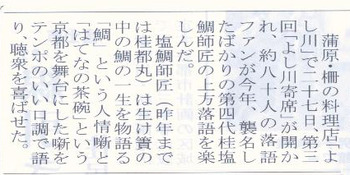 蒲原・柵の料理店「よ
し川」で二十七日、第三
回「よし川寄席」が開か
れ、約八十人の落語
ファンが今年、襲名し
たばかりの第四代桂塩
鯛師匠の上方落語を楽
しんだ。
塩鯛師匠（昨年まで
は桂都丸）は生け簀の
中の鯛の一生を物語る
「鯛」という人情噺と
「はてなの茶碗」という
京都を舞台にした噺を
テンポのいい口調で語
り、聴衆を喜ばせた。